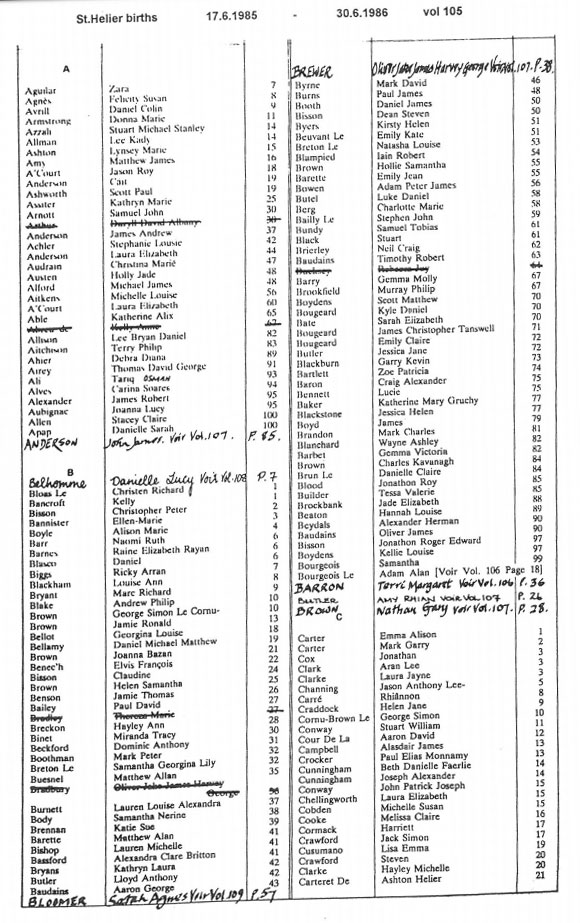 St.Helier births 17.6.1985 - 30.6.1986 vol 105
A
Aguilar Zara 7
Agnès Felicity Susan 8
Avrill Daniel Colin 9
Armstrong Donna Marie 11
Azzah Stuart Michael Stanley 14
Allman Lee Kady 14
Ashton Lynsey Marie 15
Amy Matthew James 16
A'Court Jason Roy 18
Anderson Cait 19
Ashworth Scott Paul 19
Assiter Kathryn Marie 25
Arnott Samuel John 30
Arthur Daryll David Albany 30
Anderson James Andrew 37
Achler Stephanie Louise 42
Anderson Laura Elizabeth 44
Audrain Christina Marié 47
Austen Holly Jade 48
Alford Michael James 48
Aitkens Michelle Louise 56
A'Court Laura Elizabeth 60
Able Katherine Alix 65
Abreu de Kelly Anne 67
Allison Lee Bryan Daniel 82
Aitchison Terry Philip 83
Ahier Debra Diana 89
Airey Thomas David George 91
Ali Tariq OSMAN 93
Alves Carina Soares 94
Alexander James Robert 95
Aubignac Joanna Lucy 95
Allen Stacey Claire 100
Apap Danielle Sarah 100
ANDERSON John James. Voir Vol.107. P.85.
B
Belhomme Danielle Lucy Voir Vol.108 P.7
Bloas Le Christen Richard 1
Bancroft Kelly 1
Bisson Christopher Peter 2
Bannister Ellen-Marie 3
Boyle Alison Marie 4
Barr Naomi Ruth 6
Barnes Raine Elizabeth Rayan 6
Blasco Daniel 7
Biggs Ricky Arran 8
Blackham Louise Ann 9
Bryant Marc Richard 10
Blake Andrew Philip 10
Brown George Simon Le Cornu- 13
Brown Jamie Ronald 18
Bellot Georgina Louise 19
Bellamy Daniel Michael Matthew 21
Brown Joanna Bazan 22
Benec'h Elvis François 24
Bisson Claudine 25
Brown Helen Samantha 25
Benson Jamie Thomas 27
Bailey Paul David 27
Bradley Thereza Marie 27
Breckon Hayley Ann 28
Binet Miranda Tracy 30
Beckford Dominic Anthony 31
Boothman Mark Peter 32
Breton Le Samantha Georgina Lily 32
Buesnel Matthew Allan 35
Bradbury Oliver John James Harvey
George 36
Burnett Lauren Louise Alexandra 37
Body Samantha Nerine 38
Brennan Katie Sue 39
Barette Matthew Alan 41
Bishop Lauren Michelle 41
Bassford Alexandra Clare Britton 41
Bryans Kathryn Laura 42
Butler Lloyd Anthony 42
Baudains Aaron George 43
BLOOMER Sarah Agnes Voir Vol 109 P.57
BREWER Oliver John James Harvey George Voir Vol.107. P.38.
Byrne Mark David 46
Burns Paul James 48
Booth Daniel James 50
Bisson Dean Steven 50
Byers Kirsty Helen 51
Beuvant Le Emily Kate 51
Breton Le Natasha Louise 53
Blampied Iain Robert 54
Brown Hollie Samantha 55
Barette Emily Jean 55
Bowen Adam Peter James 56
Butel Luke Daniel 58
Berg Charlotte Marie 58
Bailly Le Stephen John 59
Bundy Samuel Tobias 61
Black Stuart 61
Brierley Neil Craig 62
Baudains Timothy Robert 63
Bucksey Rebecca Joy 64
Barry Gemma Molly 67
Brookfield Murray Philip 67
Boydens Scott Matthew 70
Bougeard Kyle Daniel 70
Bate Sarah Elizabeth 70
Bougeard James Christopher Tanswell 71
Bougeard Emily Claire 72
Butler Jessica Jane 72
Blackburn Garry Kevin 73
Bartlett Zoe Patricia 74
Baron Craig Alexander 75
Bennett Lucie 75
Baker Katherine Mary Gruchy 77
Blackstone Jessica Helen 77
Boyd James 79
Brandon Mark Charles 81
Blanchard Wayne Ashley 82
Barbet Gemma Victoria 82
Brown Charles Kavanagh 84
Brun Le Danielle Claire 84
Blood Jonathon Roy 85
Builder Tessa Valerie 85
Brockbank Jade Elizabeth 88
Beaton Hannah Louise 89
Beydals Alexander Herman 90
Baudains Oliver James 90
Bisson Jonathon Roger Edward 97
Boydens Kellie Louise 97
Bourgeois Samantha 99
Bourgeois Le Adam Alan [Voir Vol. 106 Page 18]
BARRON Terri Margaret Voir Vol.106 P.36
BUTLER AMY RHIAN VOIR VOL 107 P.26
BROWN Nathan Gary voir Vol.107. P.28.
C
Carter Emma Alison 1
Carter Mark Garry 2
Cox Jonathan 3
Clark Aran Lee 3
Clarke Laura Jayne 3
Channing Jason Anthony Lee- 5
Carré Rhiannon 8
Craddock Helen Jane 9
Cornu-Brown Le George Simon 10
Conway Stuart William 11
Cour De La Aaron David 12
Campbell Alasdair James 13
Crocker Paul Elias Monnamy 13
Cunningham Beth Danielle Faerlie 14
Cunningham Joseph Alexander 14
Conway John Patrick Joseph 15
Chellingworth Laura Elizabeth 15
Cobden Michelle Susan 15
Cooke Melissa Claire 16
Cormack Harriett 17
Crawford Jack Simon 17
Cusumano Lisa Emma 19
Crawford Steven 20
Clarke Hayley Michelle 20
Carteret De Ashton Helier 21